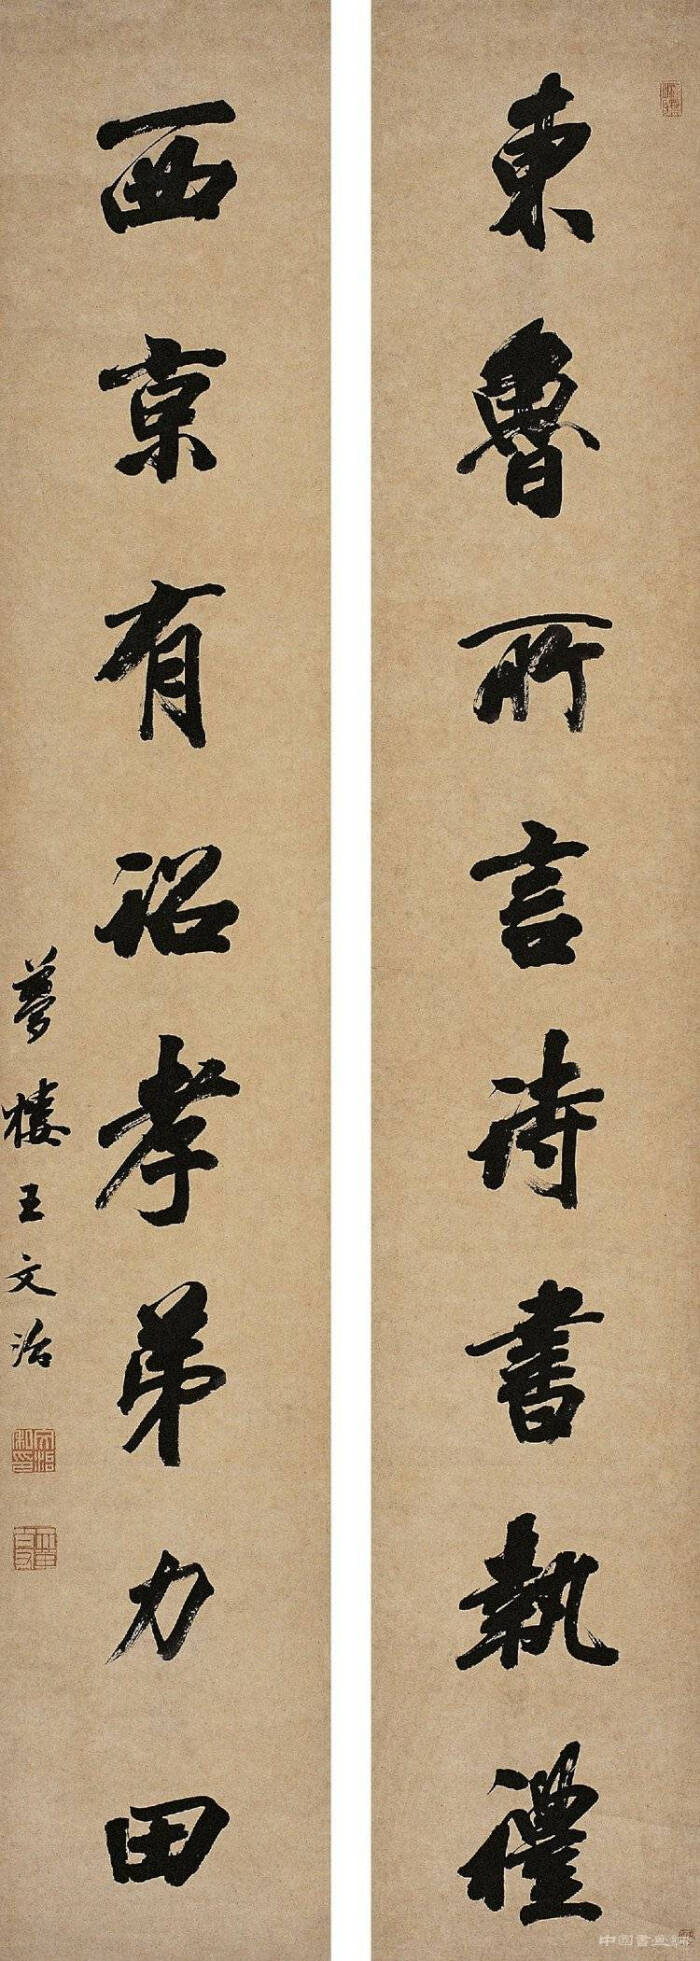 東魯所言詩書執禮
西京有詔孝弟力田
夢樓王文治
中國書畫網